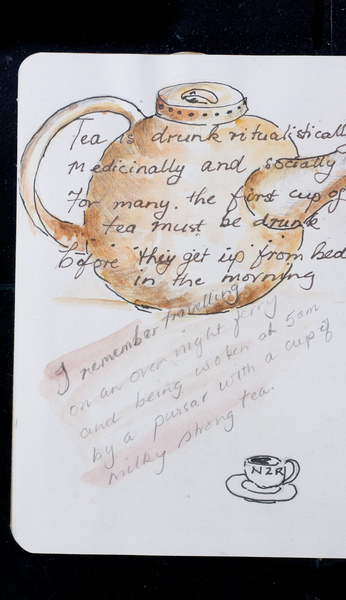 Tea is drunk ritualistically
Medicinally and socially
For many. the first cup of
tea must be drunk
before they get up from bed
in the morning
I remember travelling
on an over night ferry
and being woken at 5am
by a pursar with a cup of
milky strong tea.
NZR